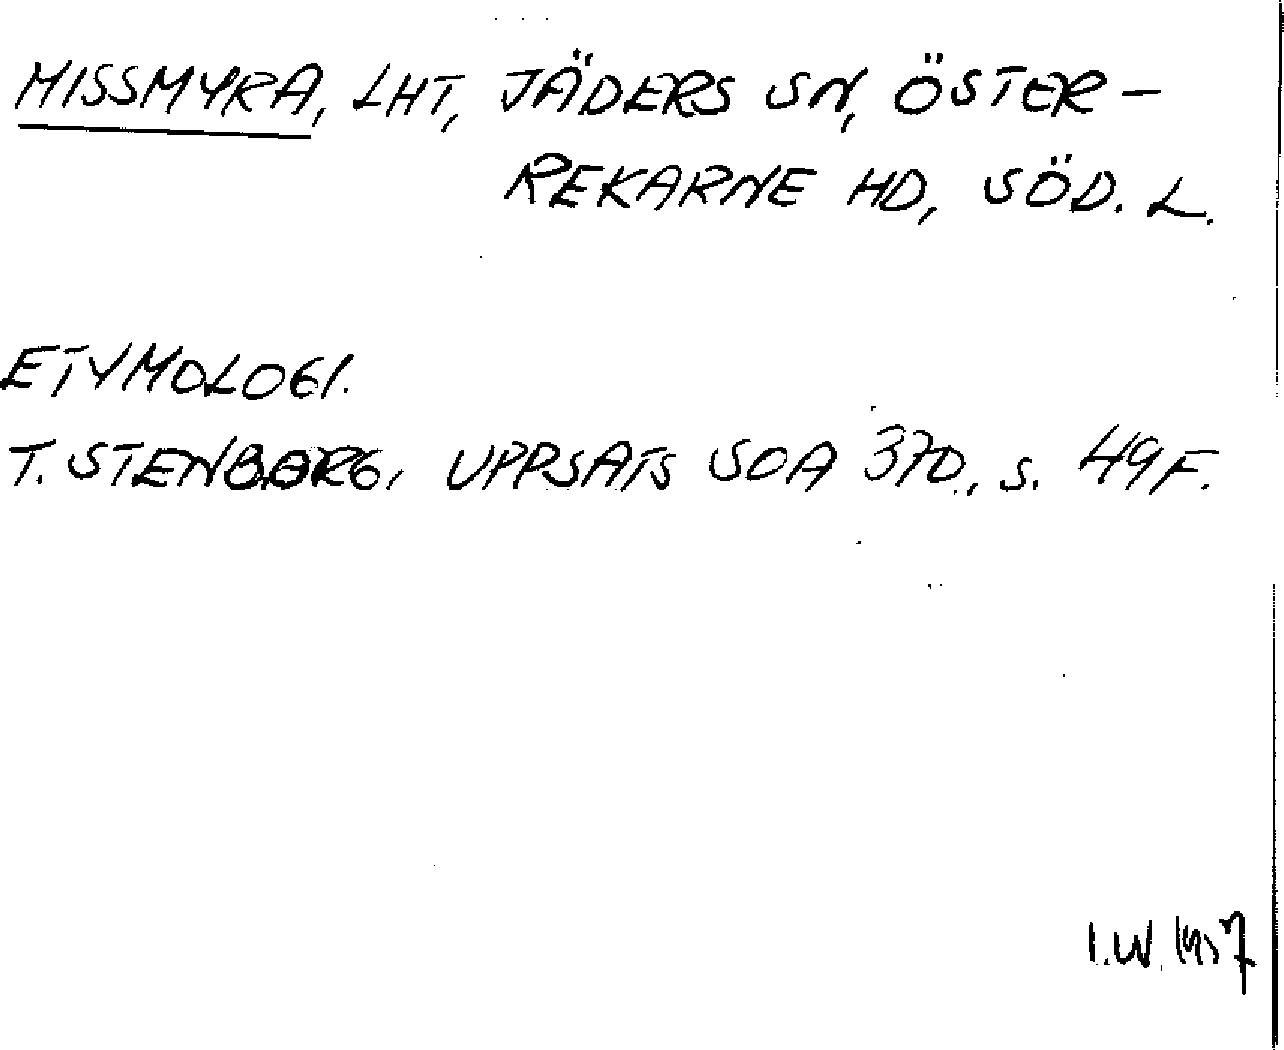 MISSMYRA, LHT, JÄDERS SN, ÖSTER-
REKARNE HD, SÖD. L.
ETYMOLOGI.
T. STENBERG, UPPSATS SOA 370., S. 49 F.
I.W. 1957